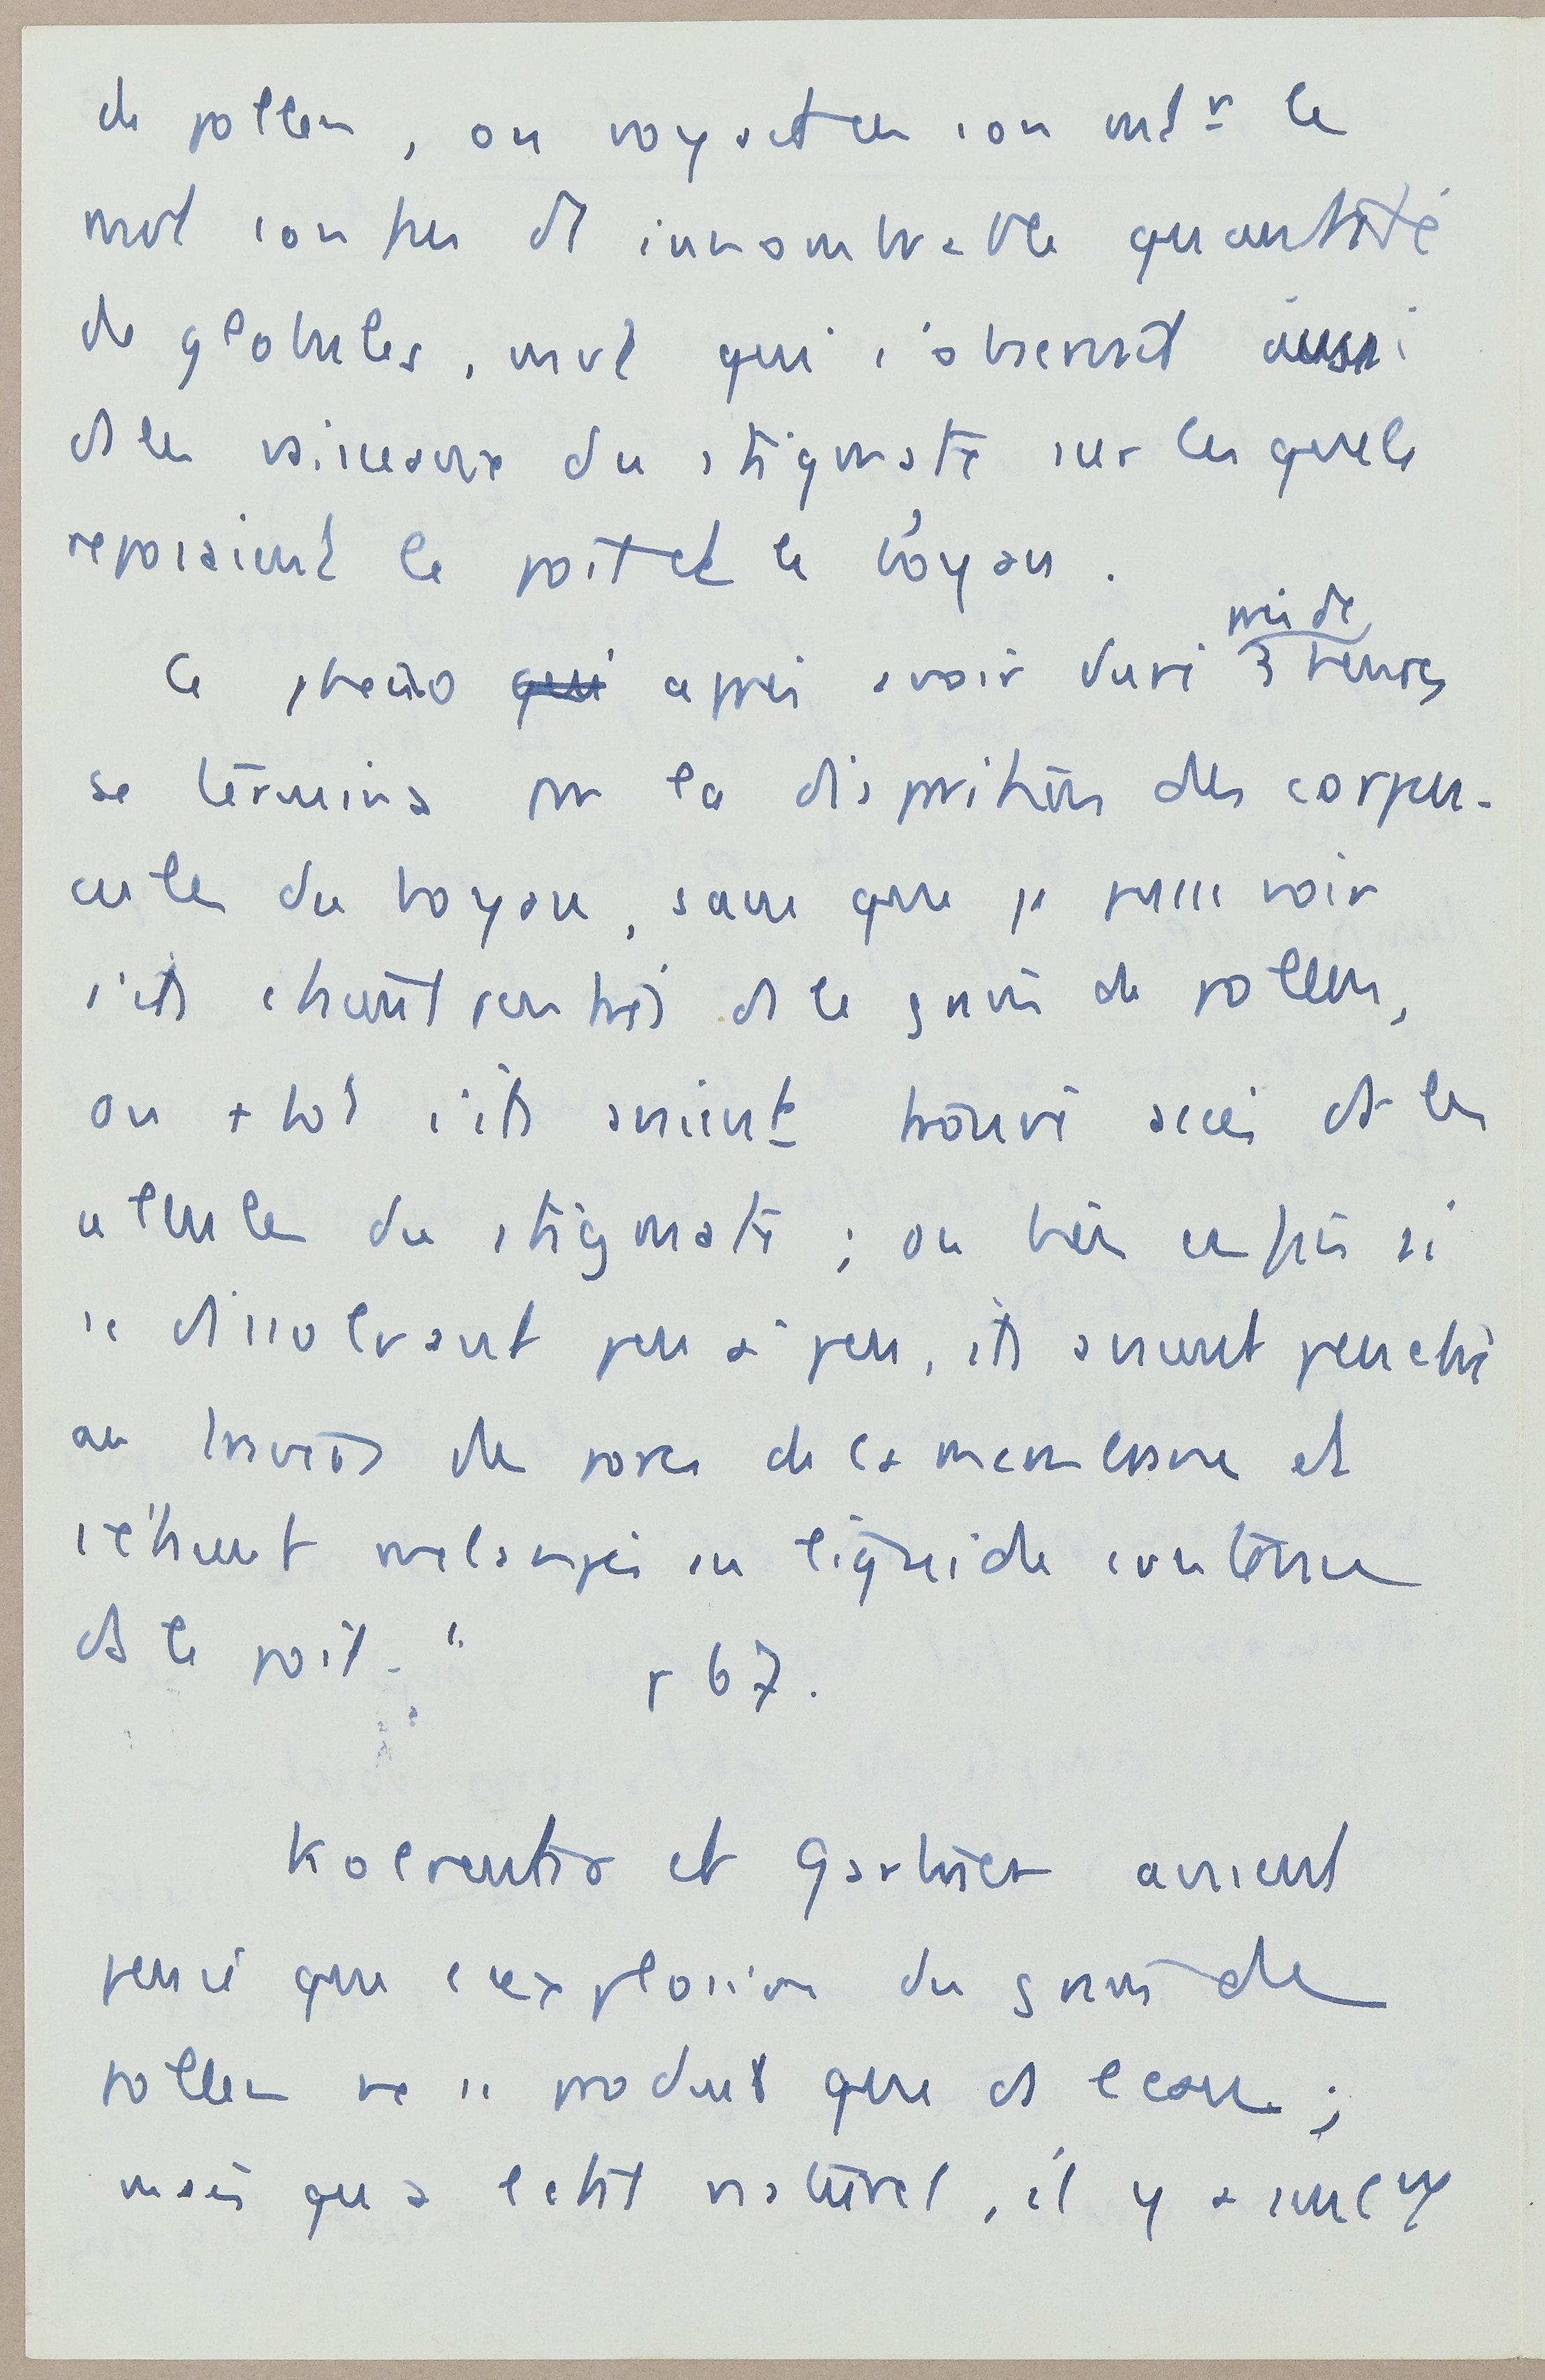 de pollen, on voyait en son intr le
mvt confus d1 innombrable quantité
de globules, mvt qui s'observait aussi
ds les vaisseaux du stigmate sur lesquels
reposaient le poil et le boyau.
Ce phéno qui après avoir duré près de 3 heures
se termina par la disparition des corpus-
cules du boyau, sans que je puisse voir
s'ils étaient rentrés ds le grain de pollen,
ou + tot s'ils avaient trouvé accès ds les
cellules du stigmate ; ou bien enfin si
se dissolvant peu à peu, ils avaient penché
au travers des pores de la membrane et
s'étaient mélangés au liquide contenu
ds le poil. " p 67.
Koelreuter et Gaertner avaient
pensé que l'explosion du grain de
pollen ne se produit que ds l'eau ;
mais qu'à l'état naturel, il y a seult